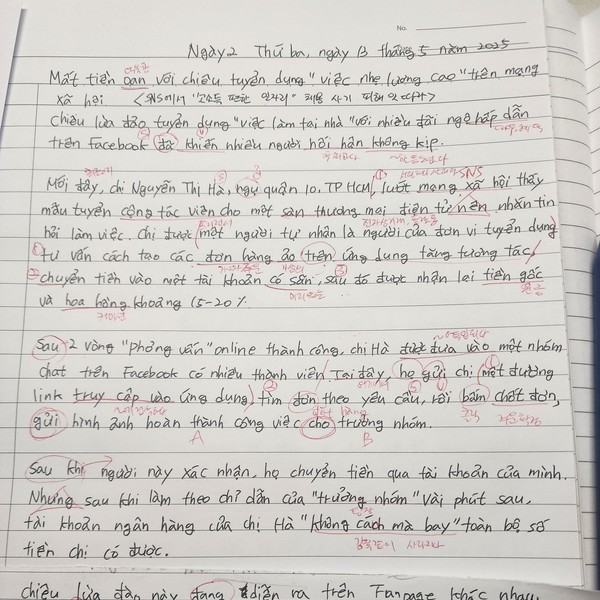 No.
Ngày 2 Thứ ba, ngày 13 tháng 5 năm 2025
Mất tiền oan với chiêu tuyển dụng "việc nhẹ lương cao" trên mạng
xã hội <SNS에서 "고소득 편한 일자리" 채용 사기 피해 잇따라>
Chiêu lừa đảo tuyển dụng "việc làm tại nhà" với nhiều đãi ngộ hấp dẫn
trên Facebook đã khiến nhiều người hối hận không kịp.
Mới đây, chị Nguyễn Thị Hà, ngụ quận 10. TP HCM, lướt mạng xã hội thấy
SNS
mẫu tuyển cộng tác viên cho một sàn thương mại điện tử nên nhắn tin
hỏi làm việc. Chị được một người tự nhận là người của đơn vị tuyển dụng
tư vấn cách tạo các đơn hàng ảo trên ứng dụng tăng tương tác,
chuyển tiền vào một tài khoản có sẵn, sau đó được nhận lại tiền gốc
원금
và hoa hồng khoảng 15-20%
커미션
Sau 2 vòng "phỏng vấn" online thành công, chị Hà được đưa vào một nhóm
chat trên Facebook có nhiều thành viên. Tại đây, họ gửi chị một đường
link truy cập vào ứng dụng, tìm đơn theo yêu cầu, rồi bấm chốt đơn,
gửi hình ảnh hoàn thành công việc cho trưởng nhóm.
A B
Sau khi người này xác nhận, họ chuyển tiền qua tài khoản của mình.
Nhưng sau khi làm theo chỉ dẫn của "trưởng nhóm" vài phút sau,
tài khoản ngân hàng của chị Hà "không cánh mà bay" toàn bộ số
tiền chị có được.
감쪽같이 사라지다
chiêu lừa đàn này đang diễn ra trên Fanpage khác nhau.